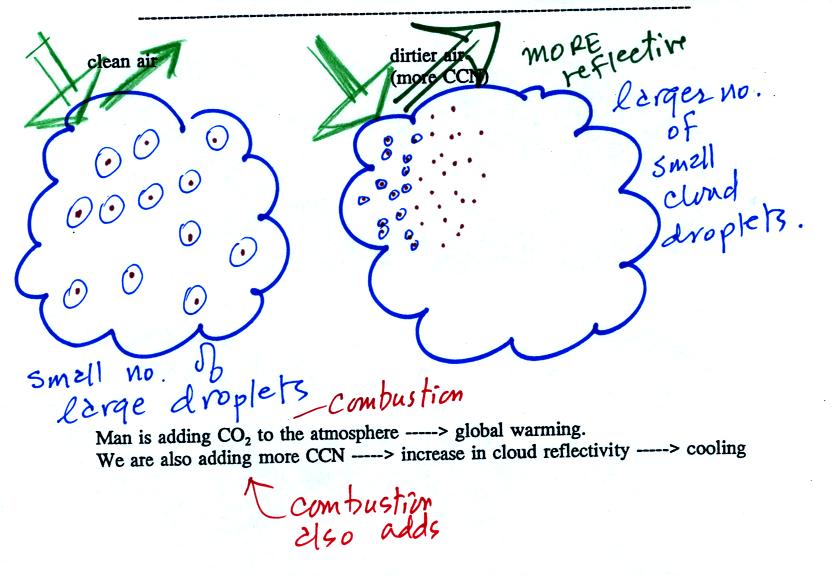 clean air
dirtier air
(more CCN)
MORE
reflective
larger no.
of
small
cloud
droplets.
small no. of
large droplets
combustion
Man is adding CO₂ to the atmosphere -----> global warming.
We are also adding more CCN -----> increase in cloud reflectivity -----> cooling
combustion
also adds